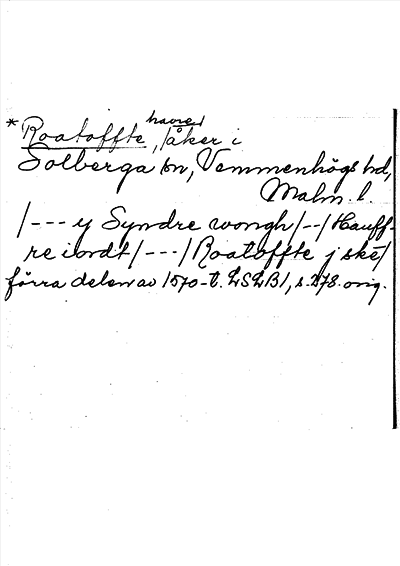 havre
* Roatoffte, /åker i
Solberga sn, Vemmenhögs hd,
Malm. l.
/--- y Syndre wongh /--/ Hauff-
re iordt /---/ Roatoffte j ske/
förra delen av 1570-t. LSLB1, s. 278. orig.